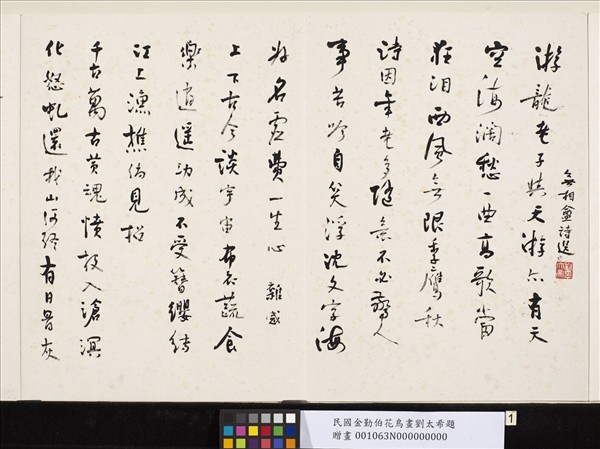 無相盦詩選
游龍老子與天游亦有天
空海闊愁一曲高歌當
狂泪西風無限季鷹秋
詩因年老多隨意不必驚人
事苦吟自笑浮沈文字海
為名虛費一生心 雜感
上下古今談宇宙布衣蔬食
樂逍遙功成不受簪纓縛
江上漁樵見招
千古萬古黃魂憤殺入滄溟
化怒虬還我山河終有日骨灰
民國金勤伯花鳥畫劉太希題
贈畫 001063N000000000
1